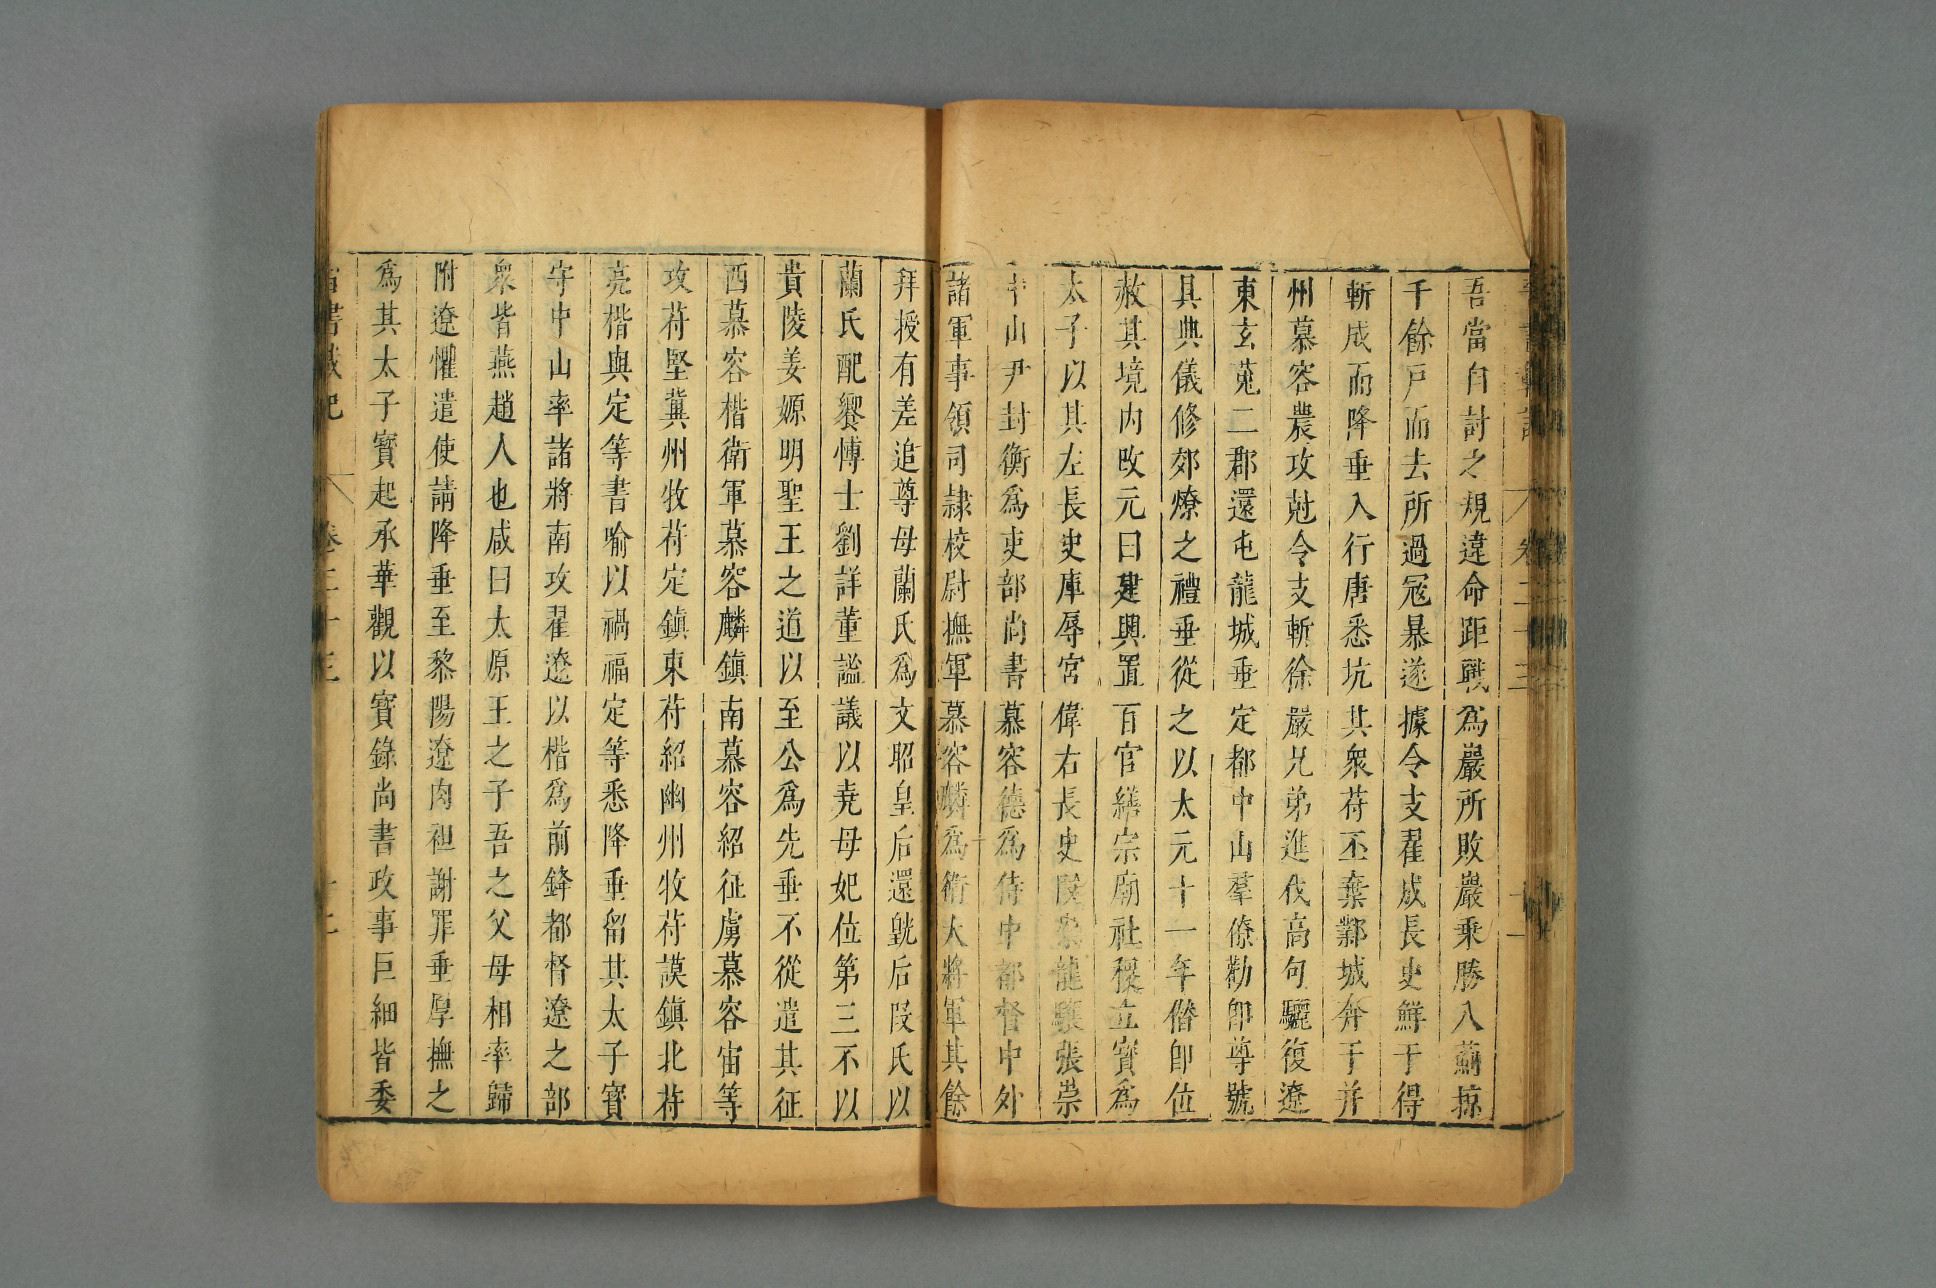 吾當自討之規違命距戰為巖所敗巖乘勝入薊掠
千餘戸而去所過冦暴遂據令支翟成長史鮮于得
斬成而降垂入行唐悉坑其衆苻丕棄鄴城奔于并
州慕容農攻尅令支斬徐巖兄弟進伐高句驪復遼
東玄菟二郡還屯龍城垂定都中山羣僚勸卽尊號
具典儀修郊燎之禮垂從之以太元十一年僭卽位
赦其境内改元曰建興置百官繕宗廟社稷立寶為
太子以其左長史庫辱官偉右長史叚崇龍驤張崇
中山尹封衡為吏部尚書慕容德為侍中都督中外
諸軍事領司隷校尉撫軍慕容麟為衛大將軍其餘
拜授有差追尊母蘭氏為文昭皇后遷皝后叚氏以
蘭氏配饗博士劉詳董謐議以堯母妃位第三不以
貴陵姜嫄明聖王之道以至公為先垂不從遣其征
西慕容楷衛軍慕容麟鎮南慕容紹征虜慕容宙等
攻苻堅冀州牧苻定鎮東苻紹幽州牧苻謨鎮北苻
亮楷與定等書喻以禍福定等悉降垂留其太子寶
守中山率諸將南攻翟遼以楷為前鋒都督遼之部
衆皆燕趙人也咸曰太原王之子吾之父母相率歸
附遼懼遣使請降垂至黎陽遼肉袒謝罪垂厚撫之
為其太子寶起承華觀以寶錄尚書政事巨細皆委
晉書載記 卷二十三